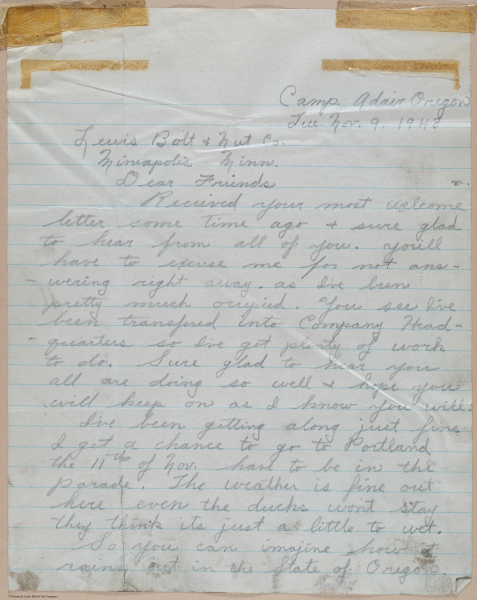 Camp Adair Oregon
Tue. Nov. 9, 1943
Lewis Bolt & Nut Co.
Minneapolis Minn.
Dear Friends
Recieved your most welcome
letter some time ago & sure glad
to hear from all of you. you'll
have to excuse me for not ans-
wering right away. as I've been
pretty much occupied. You see I've
been transfered into Company Head-
quarters so I've got plenty of work
to do. Sure glad to hear you
all are doing so well & hope you
will keep on as I know you will.
I've been getting along just fine
I get a chance to go to Portland
the 11th of Nov. have to be in the
parade. The weather is fine out
here even the ducks wont stay
they think its just a little to wet.
So you can imajine how it
rains out in the state of Oregon.